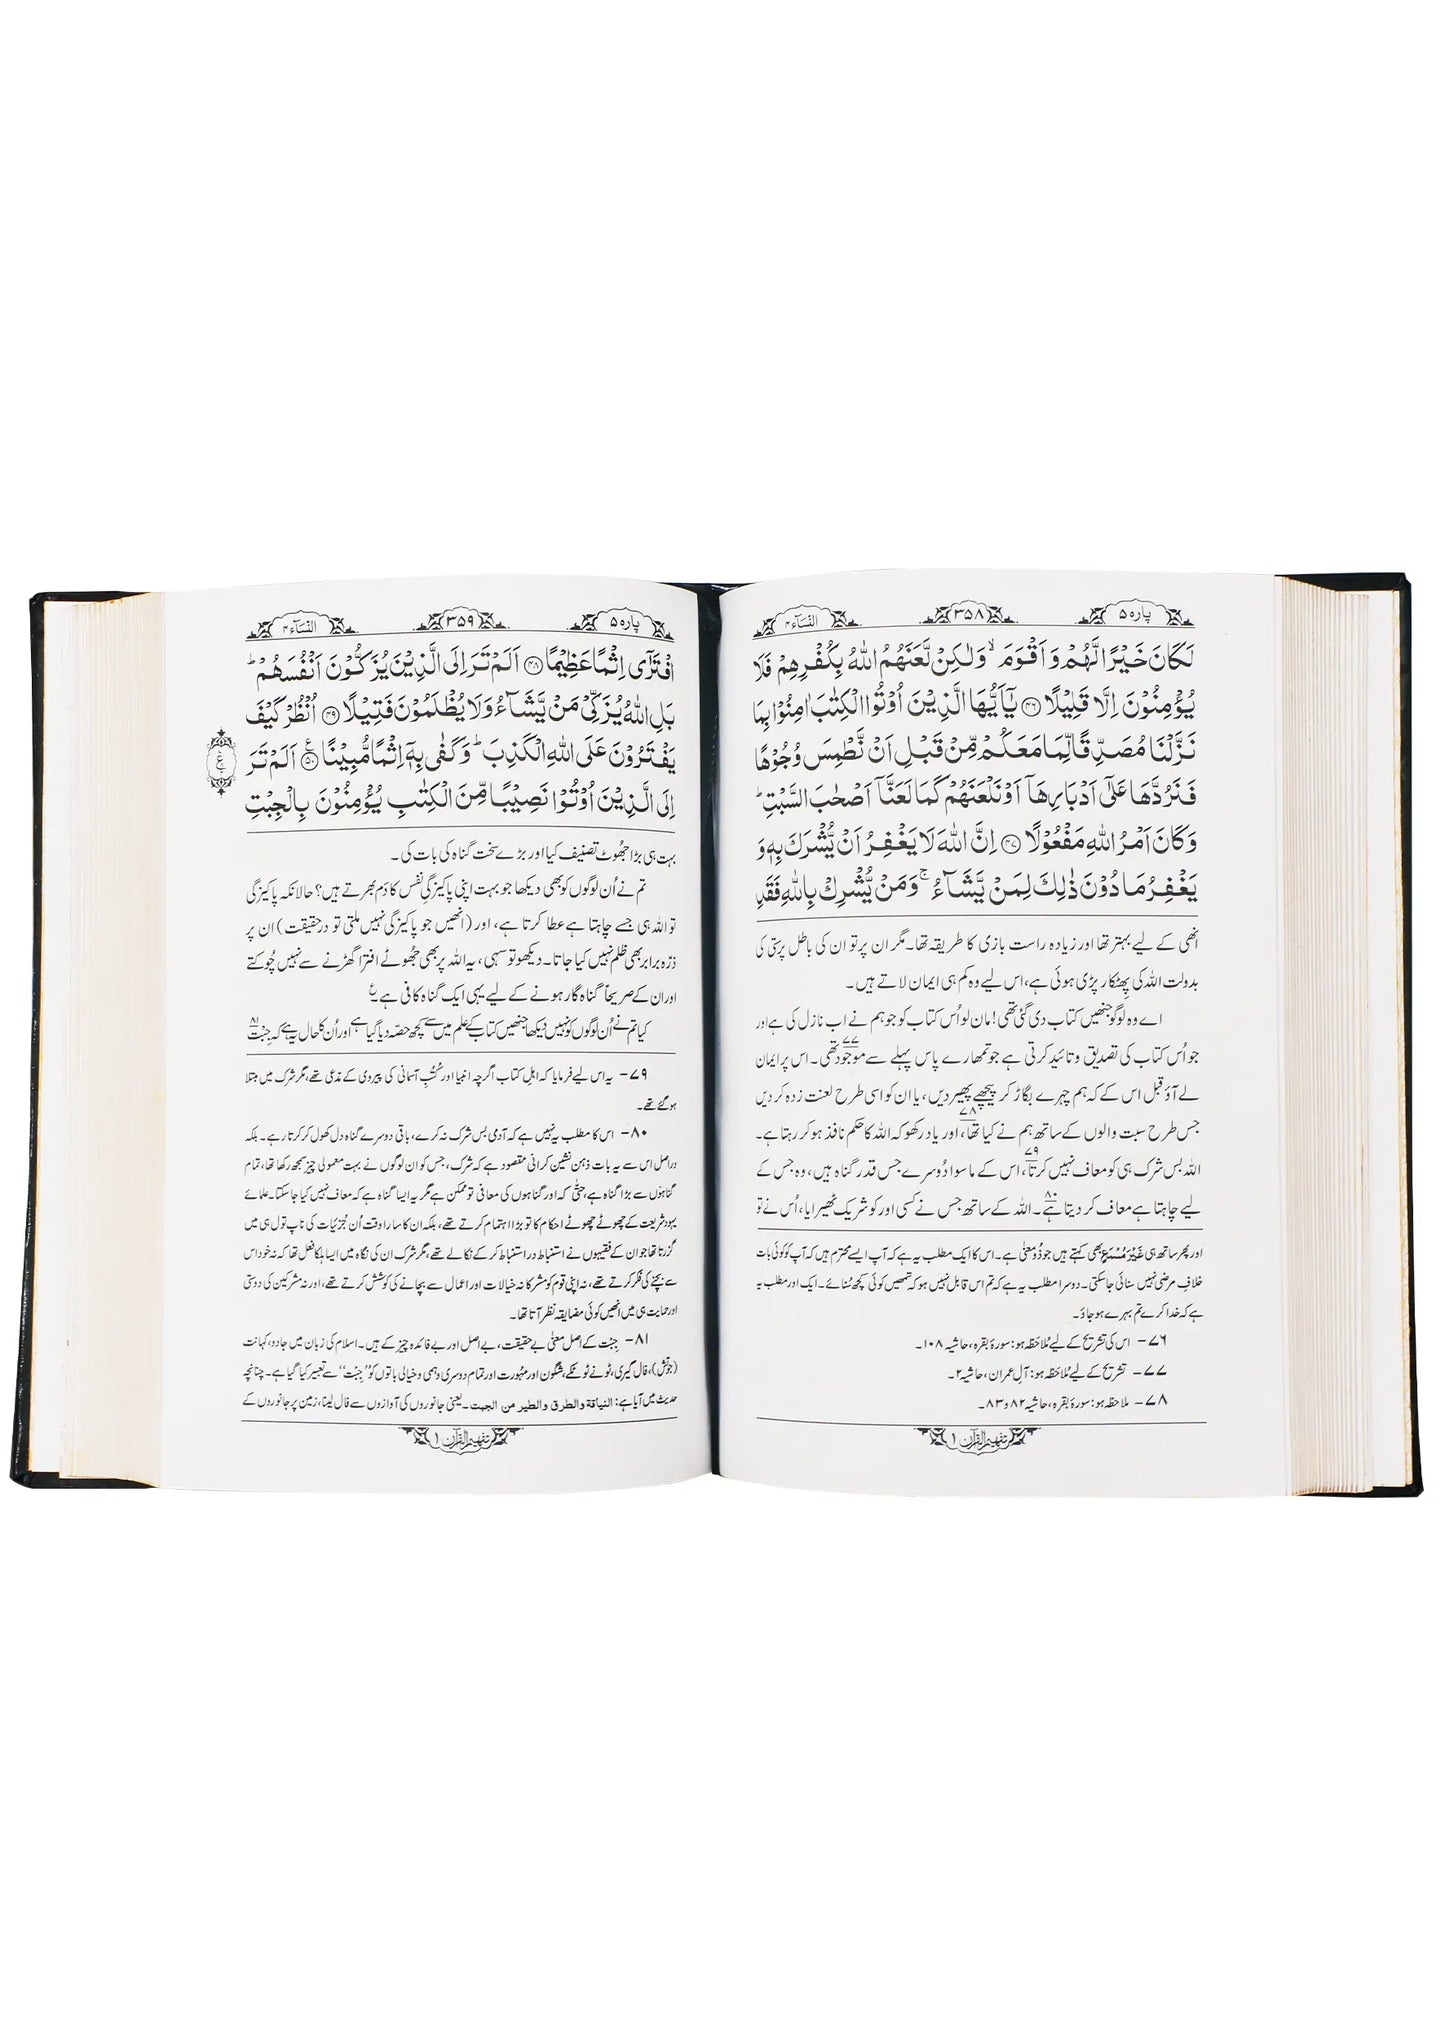 پارہ ۵
۳۵۸
النسآء ۴
لَكَانَ خَيْرًا لَّهُمْ وَاَقْوَمَ ۙ وَلٰكِنْ لَّعَنَهُمُ اللّٰهُ بِكُفْرِهِمْ فَلَا
يُؤْمِنُوْنَ اِلَّا قَلِيْلًا ﴿۴۶﴾ يٰۤاَيُّهَا الَّذِيْنَ اُوْتُوا الْكِتٰبَ اٰمِنُوْا بِمَا
نَزَّلْنَا مُصَدِّقًا لِّمَا مَعَكُمْ مِّنْ قَبْلِ اَنْ نَّطْمِسَ وُجُوْهًا
فَنَرُدَّهَا عَلٰۤى اَدْبَارِهَاۤ اَوْ نَلْعَنَهُمْ كَمَا لَعَنَّاۤ اَصْحٰبَ السَّبْتِ ؕ
وَكَانَ اَمْرُ اللّٰهِ مَفْعُوْلًا ﴿۴۷﴾ اِنَّ اللّٰهَ لَا يَغْفِرُ اَنْ يُّشْرَكَ بِهٖ وَ
يَغْفِرُ مَا دُوْنَ ذٰلِكَ لِمَنْ يَّشَآءُ ۚ وَمَنْ يُّشْرِكْ بِاللّٰهِ فَقَدِ
انھی کے لیے بہتر تھا اور زیادہ راست بازی کا طریقہ تھا۔ مگر ان پر تو ان کی باطل پرستی کی
بدولت اللہ کی پھٹکار پڑی ہوئی ہے، اس لیے وہ کم ہی ایمان لاتے ہیں۔
اے وہ لوگو جنھیں کتاب دی گئی تھی! مان لو اُس کتاب کو جو ہم نے اب نازل کی ہے اور
جو اُس کتاب کی تصدیق و تائید کرتی ہے جو تمھارے پاس پہلے سے موجود تھی۷۷۔ اس پر ایمان
لے آؤ قبل اس کے کہ ہم چہرے بگاڑ کر پیچھے پھیر دیں، یا ان کو اسی طرح لعنت زدہ کر دیں
جس طرح سبت والوں کے ساتھ ہم نے کیا تھا۷۸، اور یاد رکھو کہ اللہ کا حکم نافذ ہو کر رہتا ہے۔
اللہ بس شرک ہی کو معاف نہیں کرتا۷۹، اس کے ماسوا دُوسرے جس قدر گناہ ہیں، وہ جس کے
لیے چاہتا ہے معاف کر دیتا ہے۸۰۔ اللہ کے ساتھ جس نے کسی اور کو شریک ٹھیرایا، اُس نے تو
اور پھر ساتھ ہی غَیْرَ مُسْمَعٍ بھی کہتے ہیں جو ذُو معنٰی ہے۔ اس کا ایک مطلب یہ ہے کہ آپ ایسے محترم ہیں کہ آپ کو کوئی بات
خلافِ مرضی نہیں سنائی جا سکتی۔ دوسرا مطلب یہ ہے کہ تم اس قابل نہیں ہو کہ تمھیں کوئی کچھ سُنائے۔ ایک اور مطلب یہ
ہے کہ خدا کرے تم بہرے ہو جاؤ۔
۷۶- اس کی تشریح کے لیے مُلاحظہ ہو: سورۂ بقرہ، حاشیہ ۱۰۸۔
۷۷- تشریح کے لیے مُلاحظہ ہو: آلِ عمران، حاشیہ ۲۔
۷۸- ملاحظہ ہو: سورۂ بقرہ، حاشیہ ۸۲ و ۸۳۔
تفہیم القرآن ۱
پارہ ۵
۳۵۹
النسآء ۴
افْتَرٰۤى اِثْمًا عَظِيْمًا ﴿۴۸﴾ اَلَمْ تَرَ اِلَى الَّذِيْنَ يُزَكُّوْنَ اَنْفُسَهُمْ ؕ
بَلِ اللّٰهُ يُزَكِّيْ مَنْ يَّشَآءُ وَلَا يُظْلَمُوْنَ فَتِيْلًا ﴿۴۹﴾ اُنْظُرْ كَيْفَ
يَفْتَرُوْنَ عَلَى اللّٰهِ الْكَذِبَ ؕ وَكَفٰى بِهٖۤ اِثْمًا مُّبِيْنًا ﴿۵۰﴾ ع اَلَمْ تَرَ
اِلَى الَّذِيْنَ اُوْتُوْا نَصِيْبًا مِّنَ الْكِتٰبِ يُؤْمِنُوْنَ بِالْجِبْتِ
بہت ہی بڑا جُھوٹ تصنیف کیا اور بڑے سخت گناہ کی بات کی۔
تم نے اُن لوگوں کو بھی دیکھا جو بہت اپنی پاکیزگیِ نفس کا دَم بھرتے ہیں؟ حالانکہ پاکیزگی
تو اللہ ہی جسے چاہتا ہے عطا کرتا ہے، اور (انھیں جو پاکیزگی نہیں ملتی تو درحقیقت) ان پر
ذرّہ برابر بھی ظلم نہیں کیا جاتا۔ دیکھو تو سہی، یہ اللہ پر بھی جُھوٹے افترا گھڑنے سے نہیں چُوکتے
اور ان کے صریحاً گناہ گار ہونے کے لیے یہی ایک گناہ کافی ہے۔ ع
کیا تم نے اُن لوگوں کو نہیں دیکھا جنھیں کتاب کے علم میں سے کچھ حصّہ دیا گیا ہے اور اُن کا حال یہ ہے کہ جِبْت۸۱
۷۹- یہ اس لیے فرمایا کہ اہلِ کتاب اگرچہ انبیا اور کُتبِ آسمانی کی پیروی کے مدّعی تھے، مگر شرک میں مبتلا
ہو گئے تھے۔
۸۰- اس کا مطلب یہ نہیں ہے کہ آدمی بس شرک نہ کرے، باقی دوسرے گناہ دل کھول کر کرتا رہے۔ بلکہ
دراصل اس سے یہ بات ذہن نشین کرانی مقصود ہے کہ شرک، جس کو ان لوگوں نے بہت معمولی چیز سمجھ رکھا تھا، تمام
گناہوں سے بڑا گناہ ہے، حتّٰی کہ اور گناہوں کی معافی تو ممکن ہے مگر یہ ایسا گناہ ہے کہ معاف نہیں کیا جا سکتا۔ علمائے
یہود شریعت کے چھوٹے چھوٹے احکام کا تو بڑا اہتمام کرتے تھے، بلکہ ان کا سارا وقت اُن جُزئیات کی ناپ تول ہی میں
گزرتا تھا جو ان کے فقیہوں نے استنباط در استنباط کر کے نکالے تھے، مگر شرک ان کی نگاہ میں ایسا ہلکا فعل تھا کہ نہ خود اس
سے بچنے کی فکر کرتے تھے، نہ اپنی قوم کو مشرکانہ خیالات اور اعمال سے بچانے کی کوشش کرتے تھے، اور نہ مشرکین کی دوستی
اور حمایت ہی میں انھیں کوئی مضایقہ نظر آتا تھا۔
۸۱- جِبْت کے اصل معنٰی بے حقیقت، بے اصل اور بے فائدہ چیز کے ہیں۔ اسلام کی زبان میں جادو، کہانت
(جوتش)، فال گیری، ٹونے ٹوٹکے، شگون اور مہُورت اور تمام دوسری وہمی و خیالی باتوں کو ”جِبْت“ سے تعبیر کیا گیا ہے۔ چنانچہ
حدیث میں آیا ہے: النیاقة والطرق والطیر من الجبت۔ یعنی جانوروں کی آوازوں سے فال لینا، زمین پر جانوروں کے
تفہیم القرآن ۱